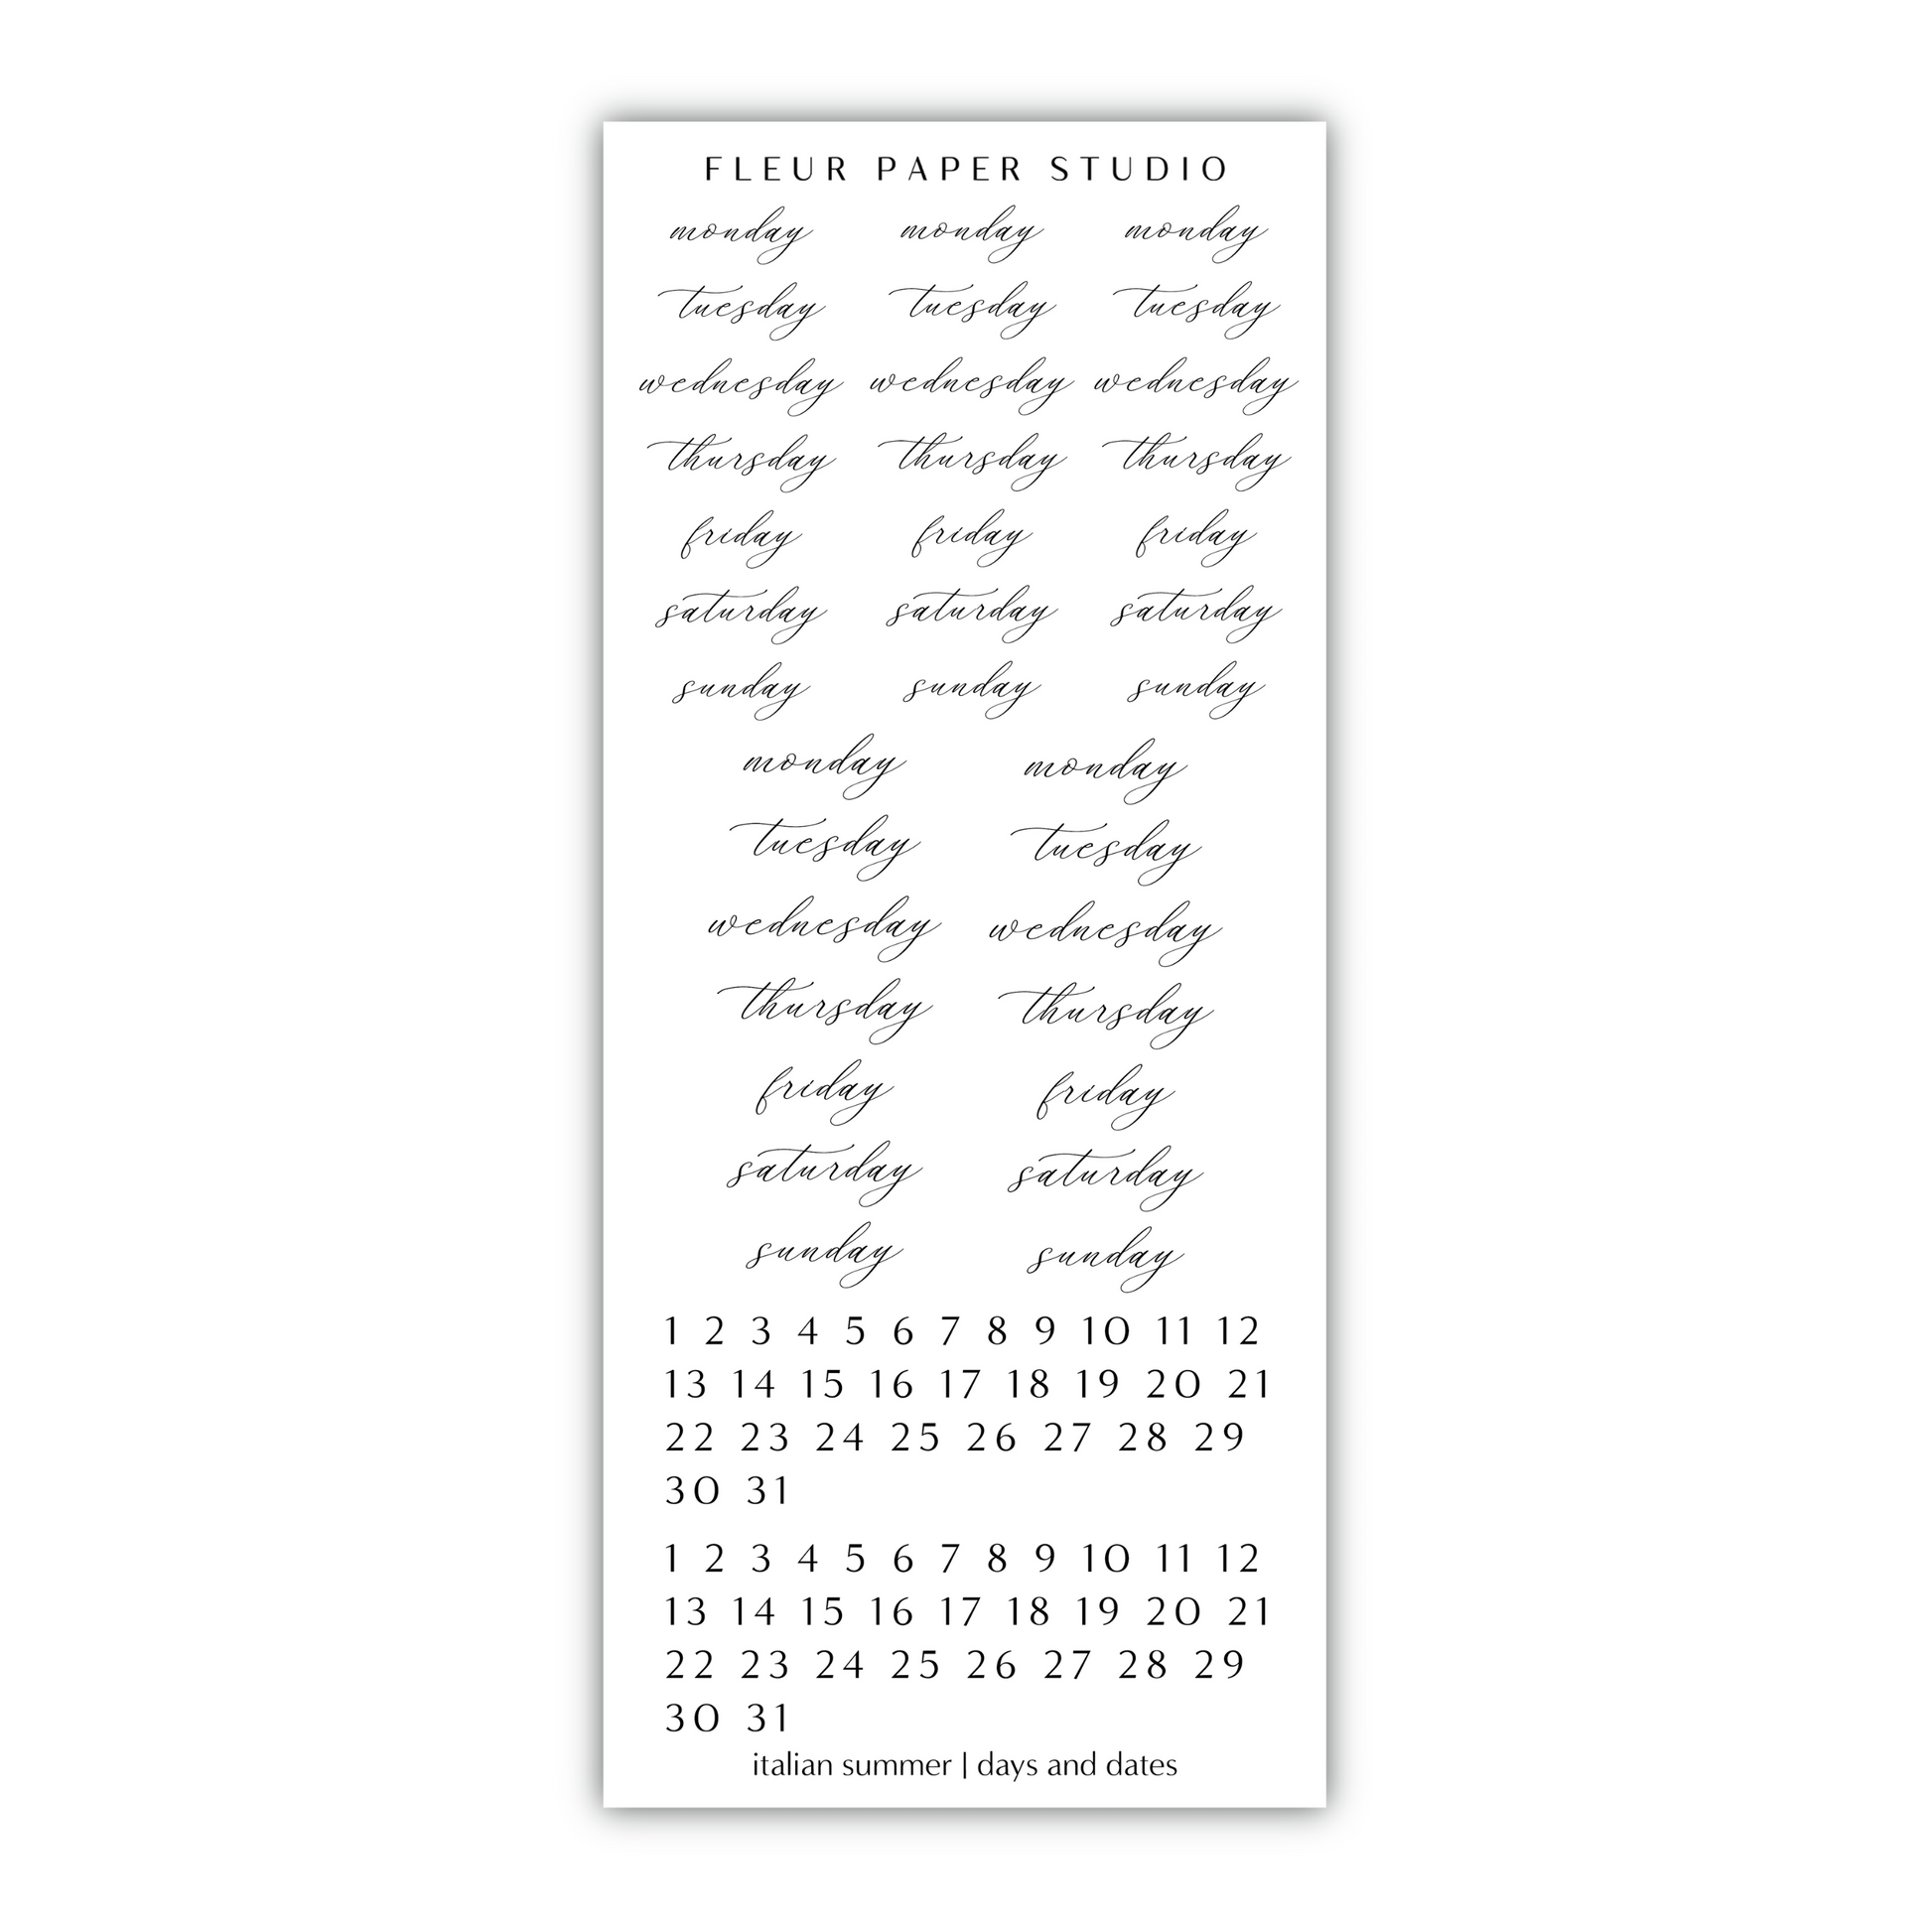 FLEUR PAPER STUDIO
monday monday monday
tuesday tuesday tuesday
wednesday wednesday wednesday
thursday thursday thursday
friday friday friday
saturday saturday saturday
sunday sunday sunday
monday monday
tuesday tuesday
wednesday wednesday
thursday thursday
friday friday
saturday saturday
sunday sunday
1 2 3 4 5 6 7 8 9 10 11 12
13 14 15 16 17 18 19 20 21
22 23 24 25 26 27 28 29
30 31
1 2 3 4 5 6 7 8 9 10 11 12
13 14 15 16 17 18 19 20 21
22 23 24 25 26 27 28 29
30 31
italian summer | days and dates